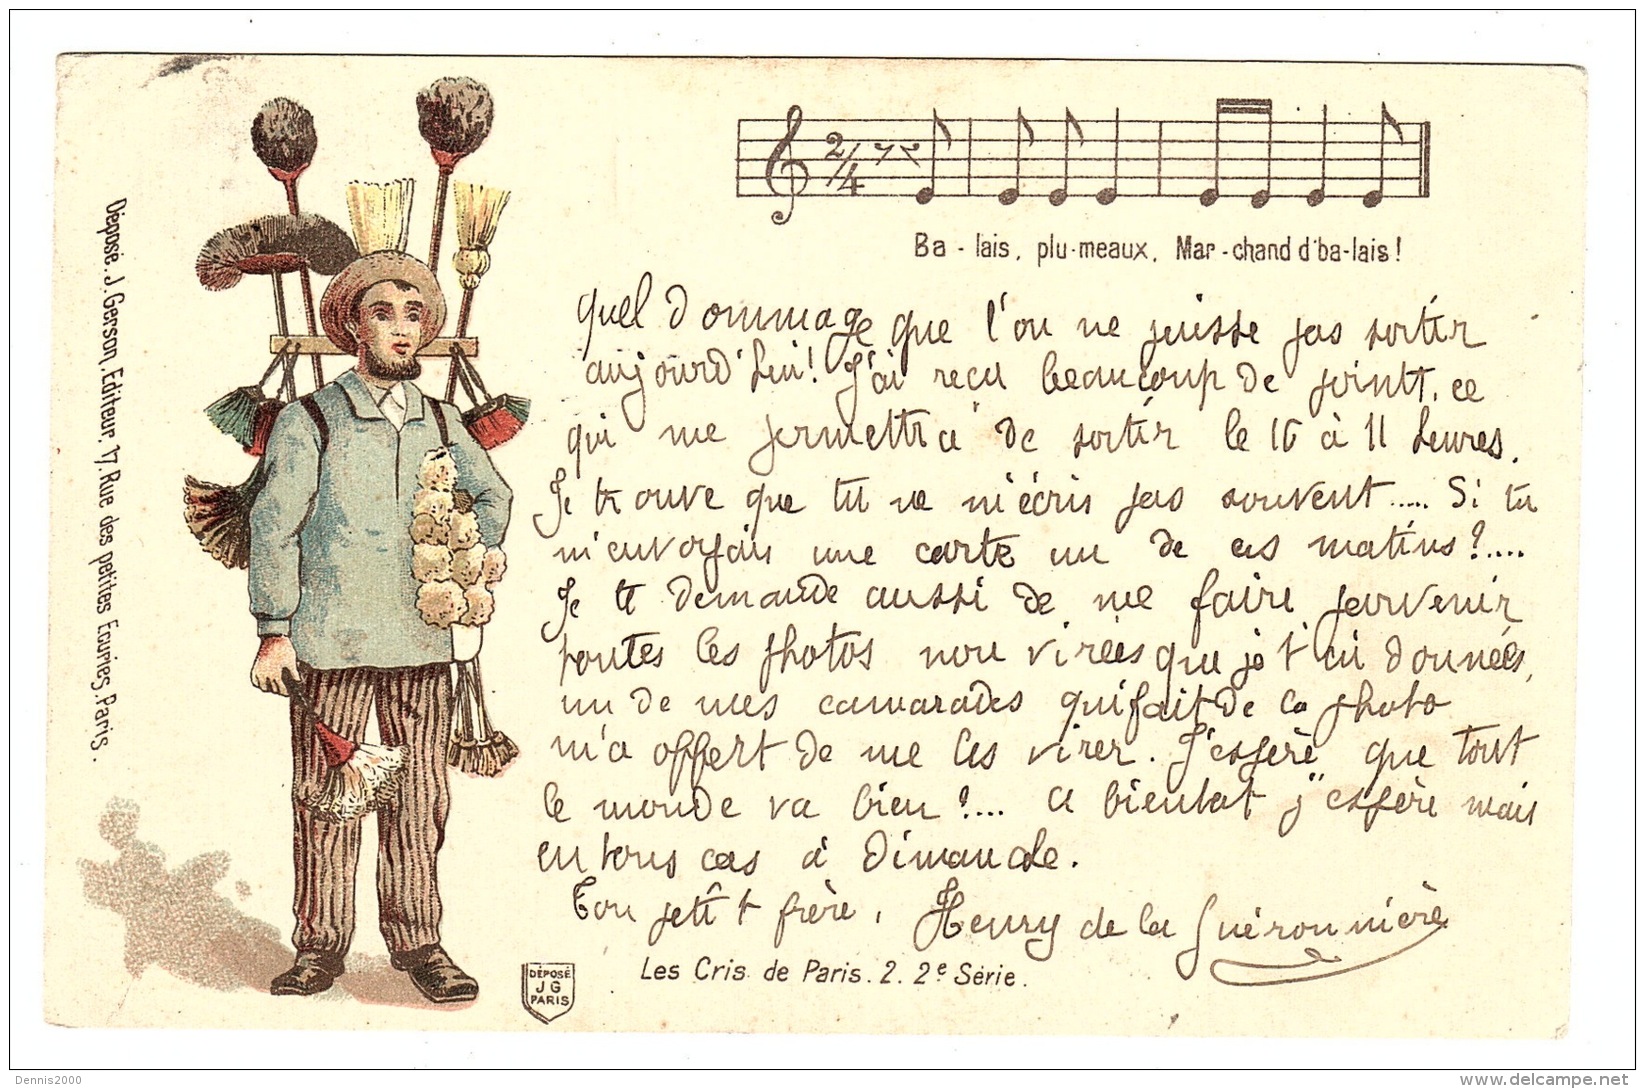 Ba - lais, plu-meaux, Mar-chand d'ba-lais!
quel dommage que l'on ne puisse pas sortir
aujourd'hui! J'ai reçu beaucoup de points, ce
qui me permettra de sortir le 16 à 11 heures.
Je trouve que tu ne m'écris pas souvent..... Si tu
m'envoyais une carte un de ces matins?....
Je te demande aussi de me faire parvenir
toutes les photos non virées que je t'ai données,
un de mes camarades qui fait de la photo
m'a offert de me les virer. J'espère que tout
le monde va bien?... A bientot j'espère mais
en tous cas à Dimanche.
Ton petit frère, Henry de la Guéronnière
Les Cris de Paris. 2. 2e Série.
DÉPOSÉ
J G
PARIS
Déposé. J. Gerson, Editeur, 17. Rue des petites Ecuries. Paris.
Dennis2000
delcampe.net